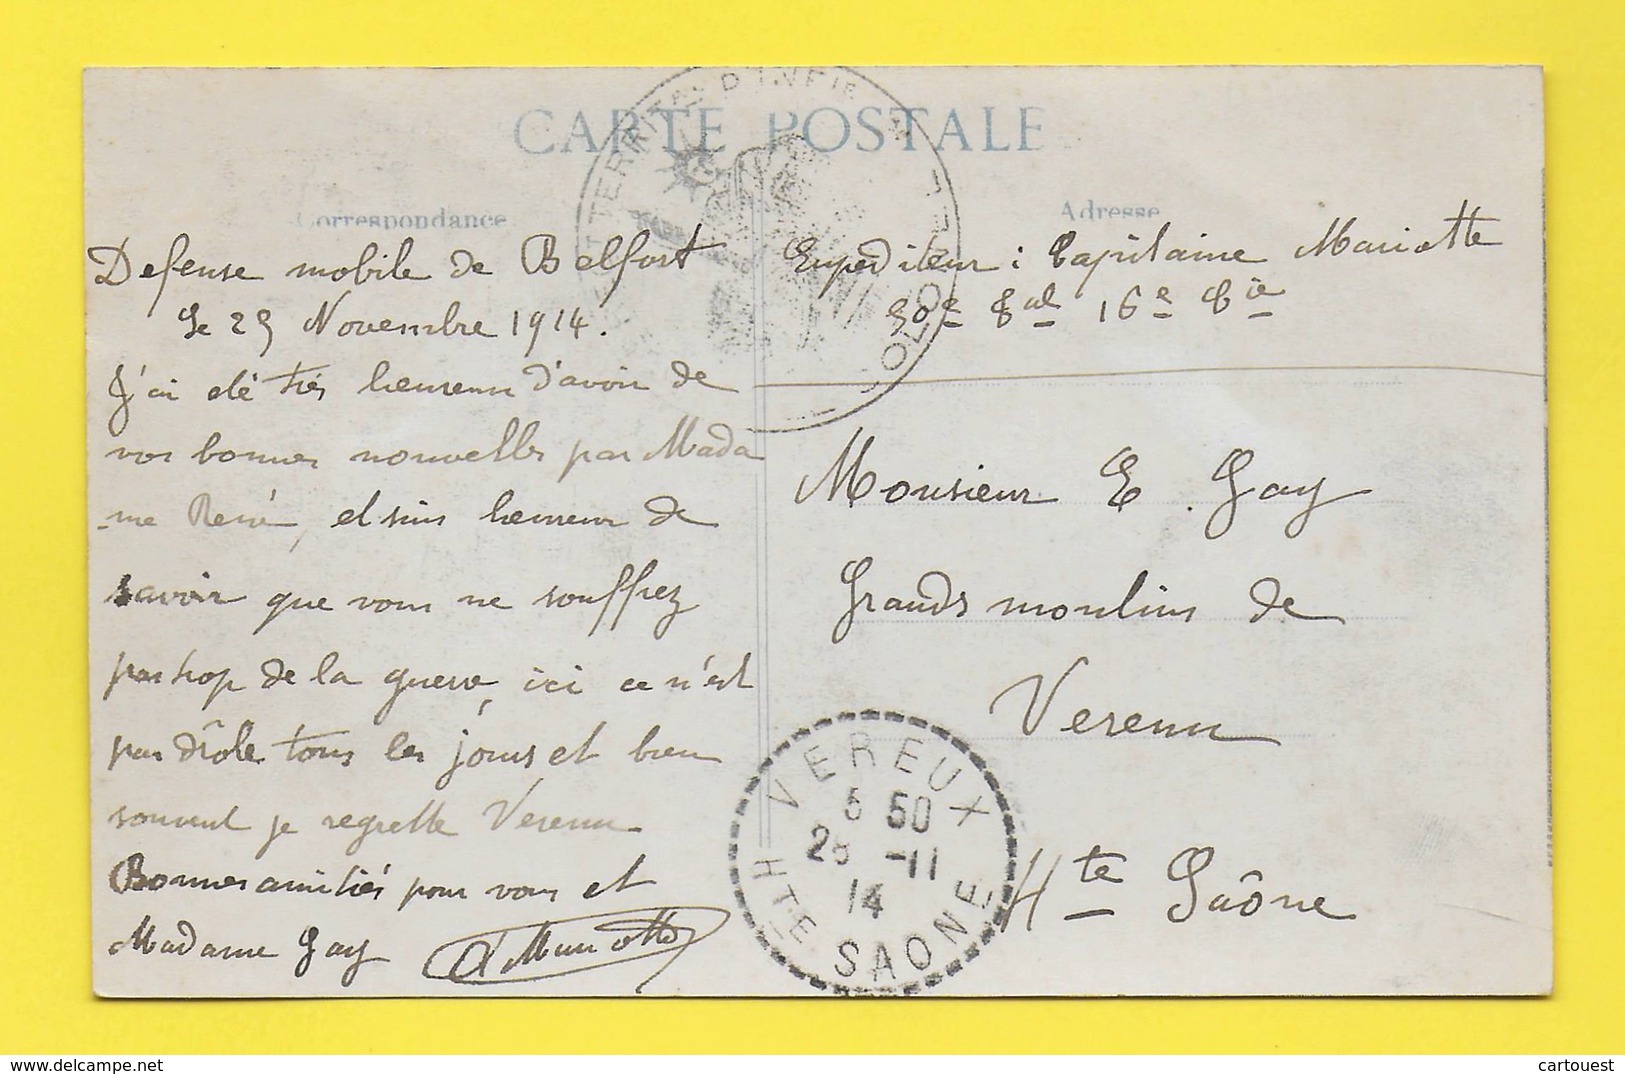 CARTE POSTALE
Correspondance
Adresse
Defense mobile de Belfort
le 23 Novembre 1914.
J'ai été très heureux d'avoir de
vos bonnes nouvelles par Mada
-me René, et suis heureux de
savoir que vous ne souffrez
pas trop de la guerre, ici ce n'est
pas drôle tous les jours et bien
souvent je regrette Vereux
Bonnes amitiés pour vous et
Madame Gay
Mariotte
Expediteur : Capitaine Mariotte
50e Bal 16e Cie
Monsieur E. Gay
Grands moulins de
Vereux
Hte Saône
TERRITAL D'INFIE
COLONEL
VEREUX
5 50
25 -11
14
HTE SAONE
cartouest